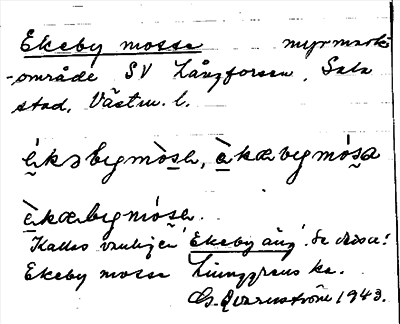 Ekeby mosse myrmark-
område SV Långforsen, Sala
stad, Västm. l.
ékəbymòsa, èkæbymósa
èkæbymósa.
Kallas vanligen 'Ekeby äng'. Se dessa!
Ekeby mosse Ljunggrens ka.
G. Qvarnström 1943.